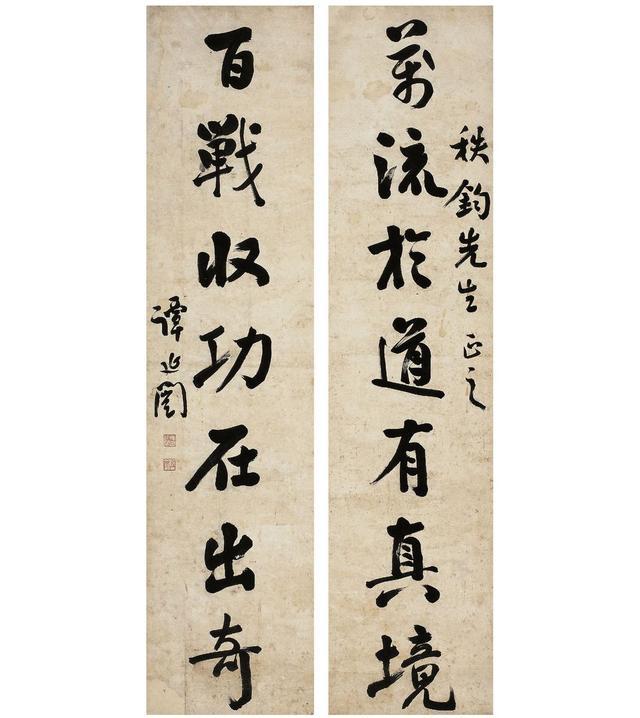 萬流於道有真境
秩鈞先生正之
百戰收功在出奇
譚延闓